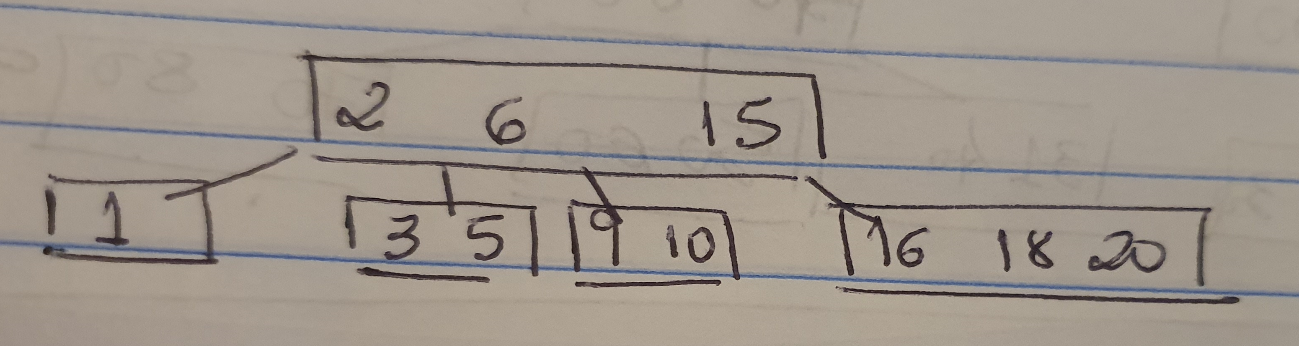 2 6 15
1 3 5 9 10 16 18 20